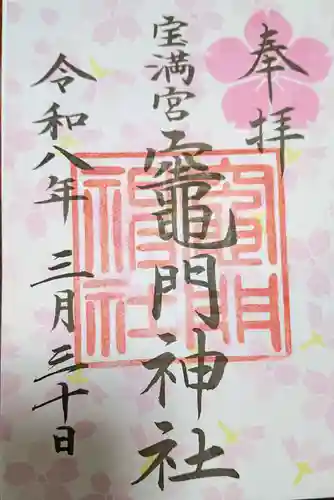 奉拝
宝満宮
竈門神社
令和八年 三月三十日
竈門神社